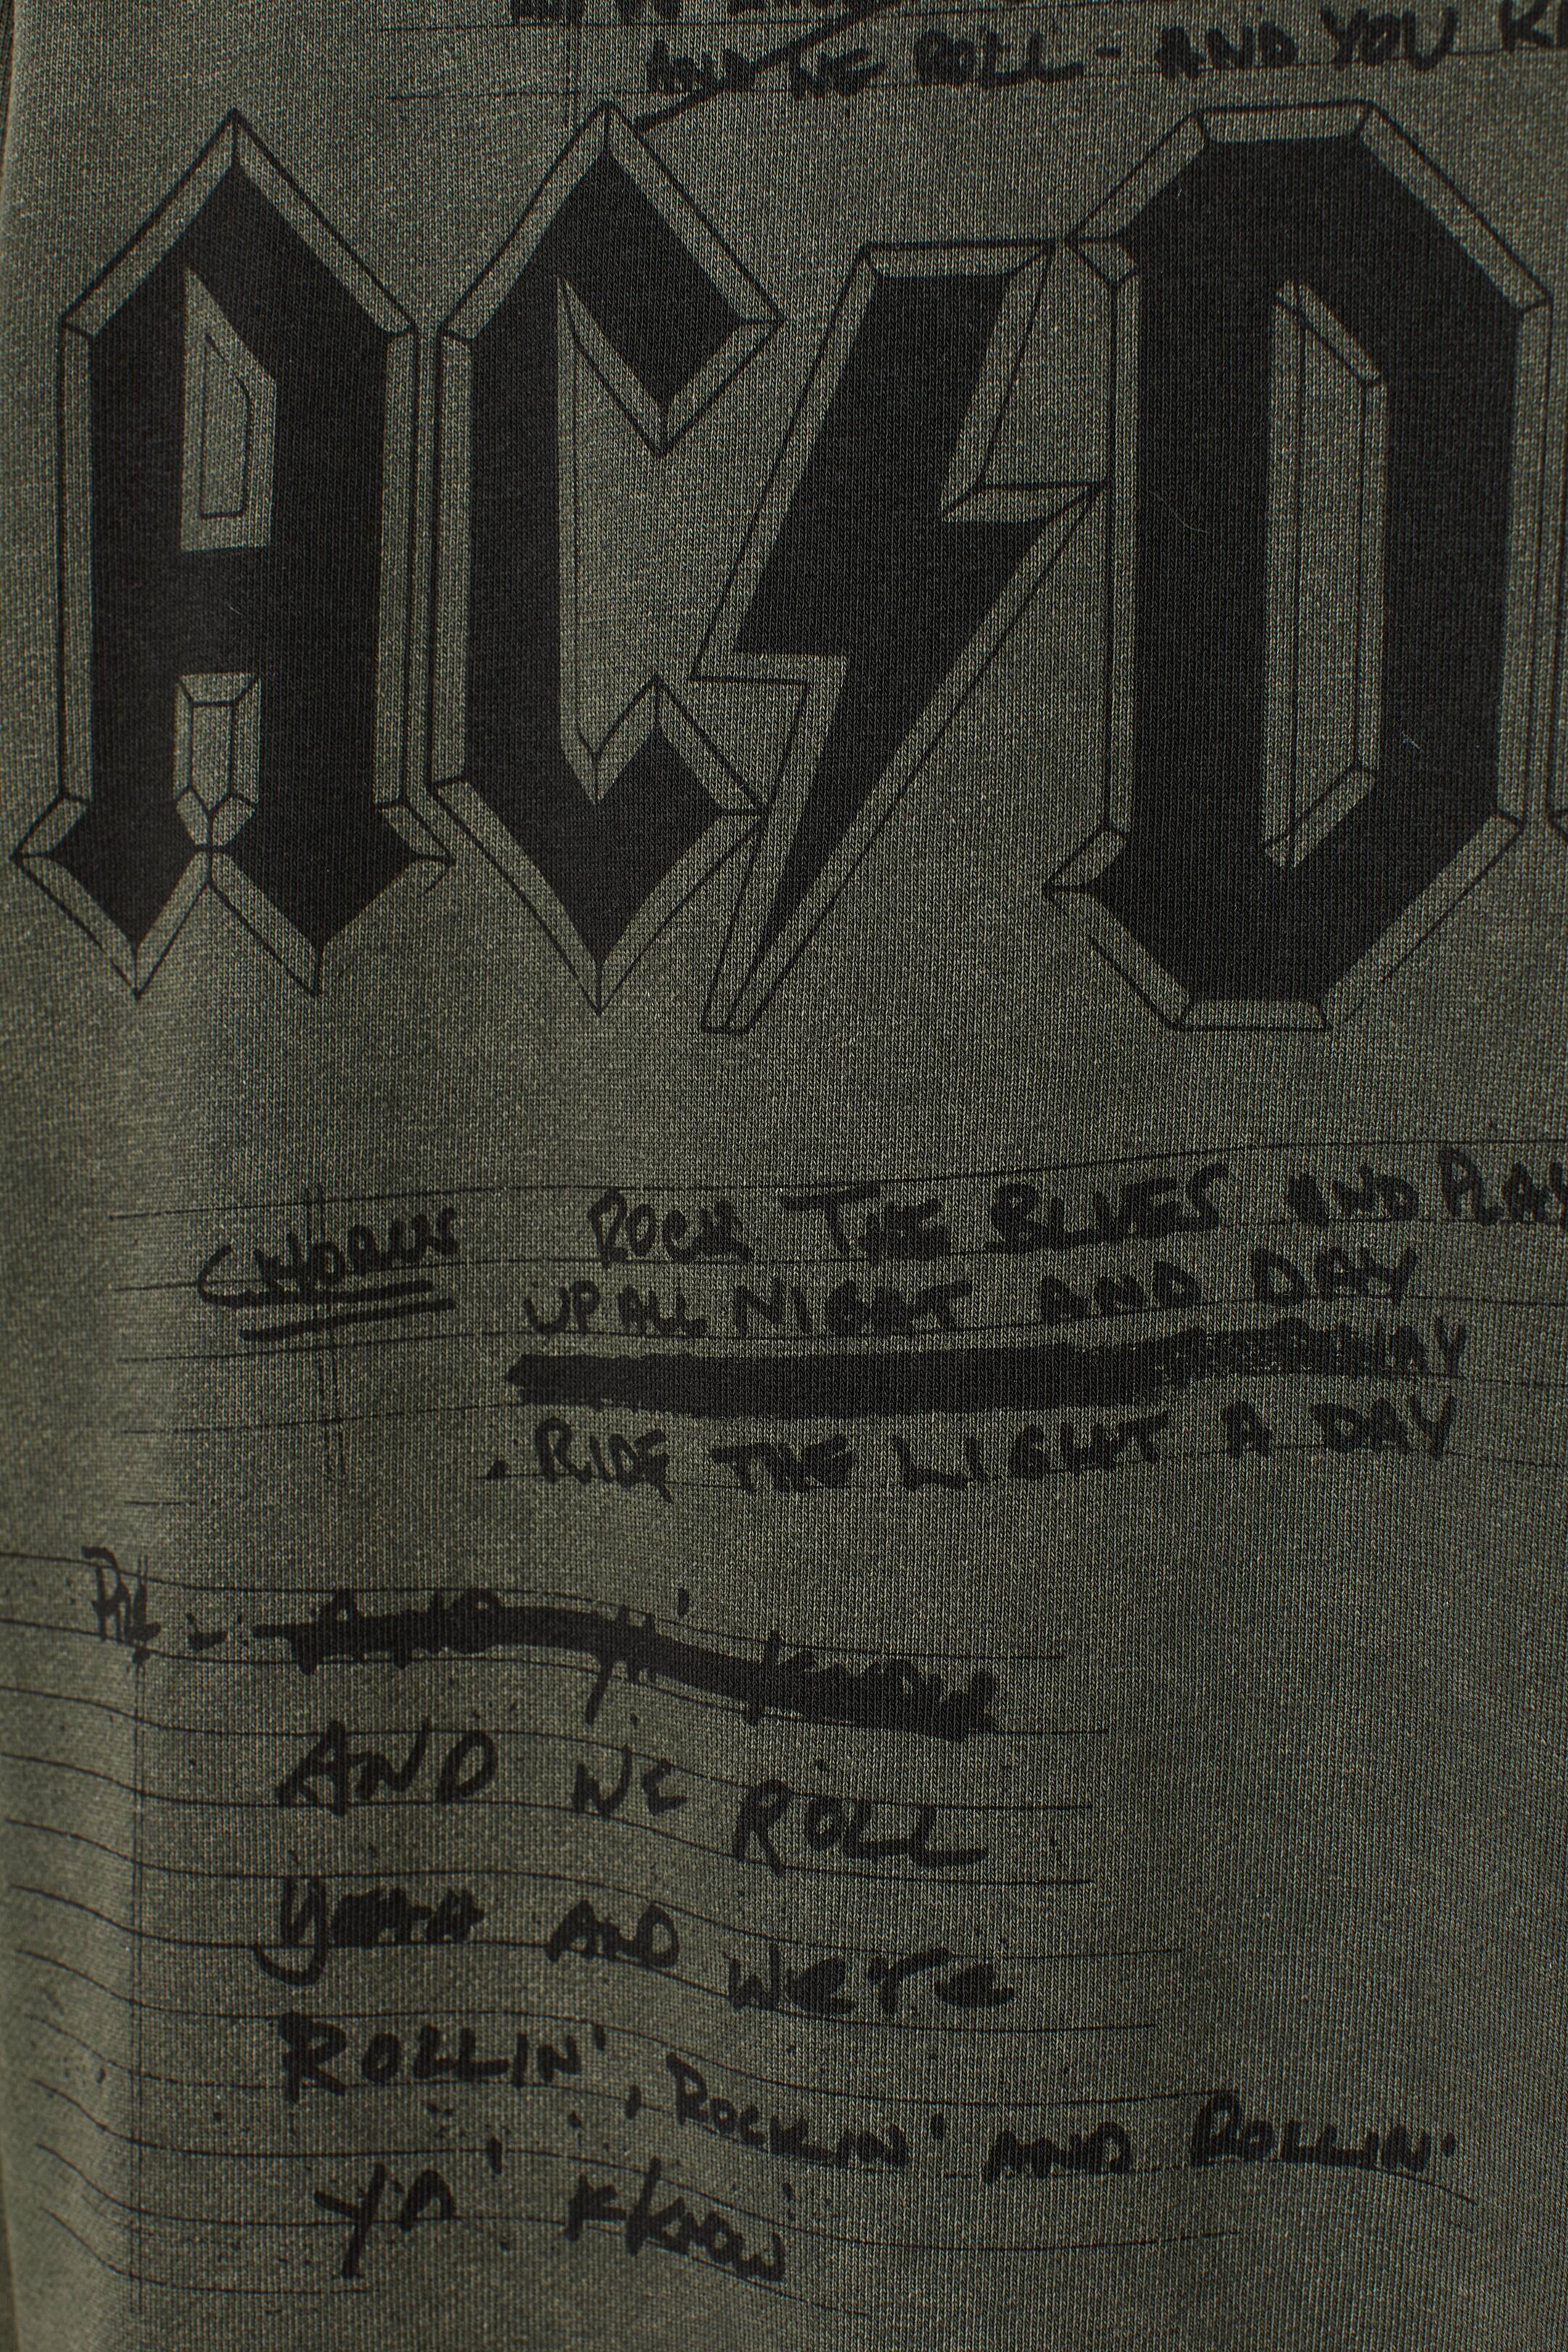 WE ROLL - AND YOU K
AC⚡D
CHORUS ROCK THE BLUES AND PLAY
UP ALL NIGHT AND DAY
RIDE THE LIGHT A DAY
AND WE ROLL
YEAH AND WERE
ROLLIN', ROCKIN' AND ROLLIN'
YA' KNOW